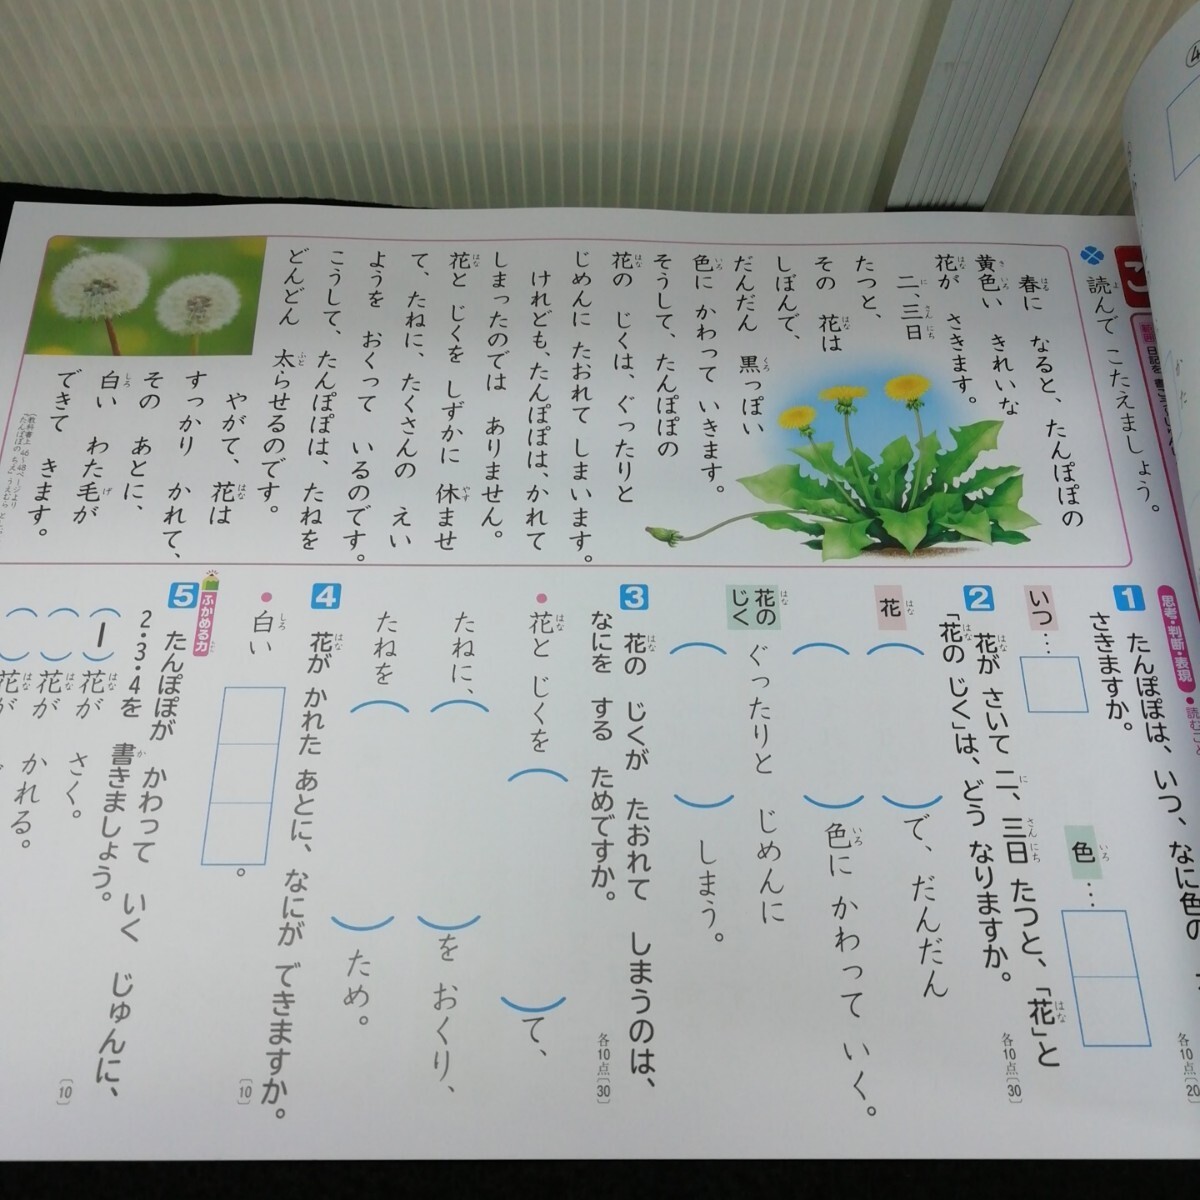 読んで こたえましょう。
春に なると、たんぽぽの
黄色い きれいな
花が さきます。
二、三日
たつと、
その 花は
しぼんで、
だんだん 黒っぽい
色に かわって いきます。
そうして、たんぽぽの
花の じくは、ぐったりと
じめんに たおれて しまいます。
けれども、たんぽぽは、かれて
しまったのでは ありません。
花と じくを しずかに 休ませ
て、たねに、たくさんの えい
ようを おくって いるのです。
こうして、たんぽぽは、たねを
どんどん 太らせるのです。
やがて、花は
すっかり かれて、
その あとに、
白い わた毛が
できて きます。
思考・判断・表現
1 たんぽぽは、いつ、なに色の
さきますか。
各10点〔20〕
いつ…
色…
2 花が さいて 二、三日 たつと、「花」と
「花の じく」は、どう なりますか。
各10点〔30〕
花
( )で、だんだん
( )色に かわって いく。
花の じく
ぐったりと じめんに
( )しまう。
3 花の じくが たおれて しまうのは、
なにを する ためですか。
各10点〔30〕
●花と じくを( )て、
たねに、( )を おくり、
たねを( )ため。
4 花が かれた あとに、なにが できますか。
〔10〕
●白い 。
ふかめる力
5 たんぽぽが かわって いく じゅんに、
2・3・4を 書きましょう。
〔10〕
(1)花が さく。
( )花が かれる。
( )花が